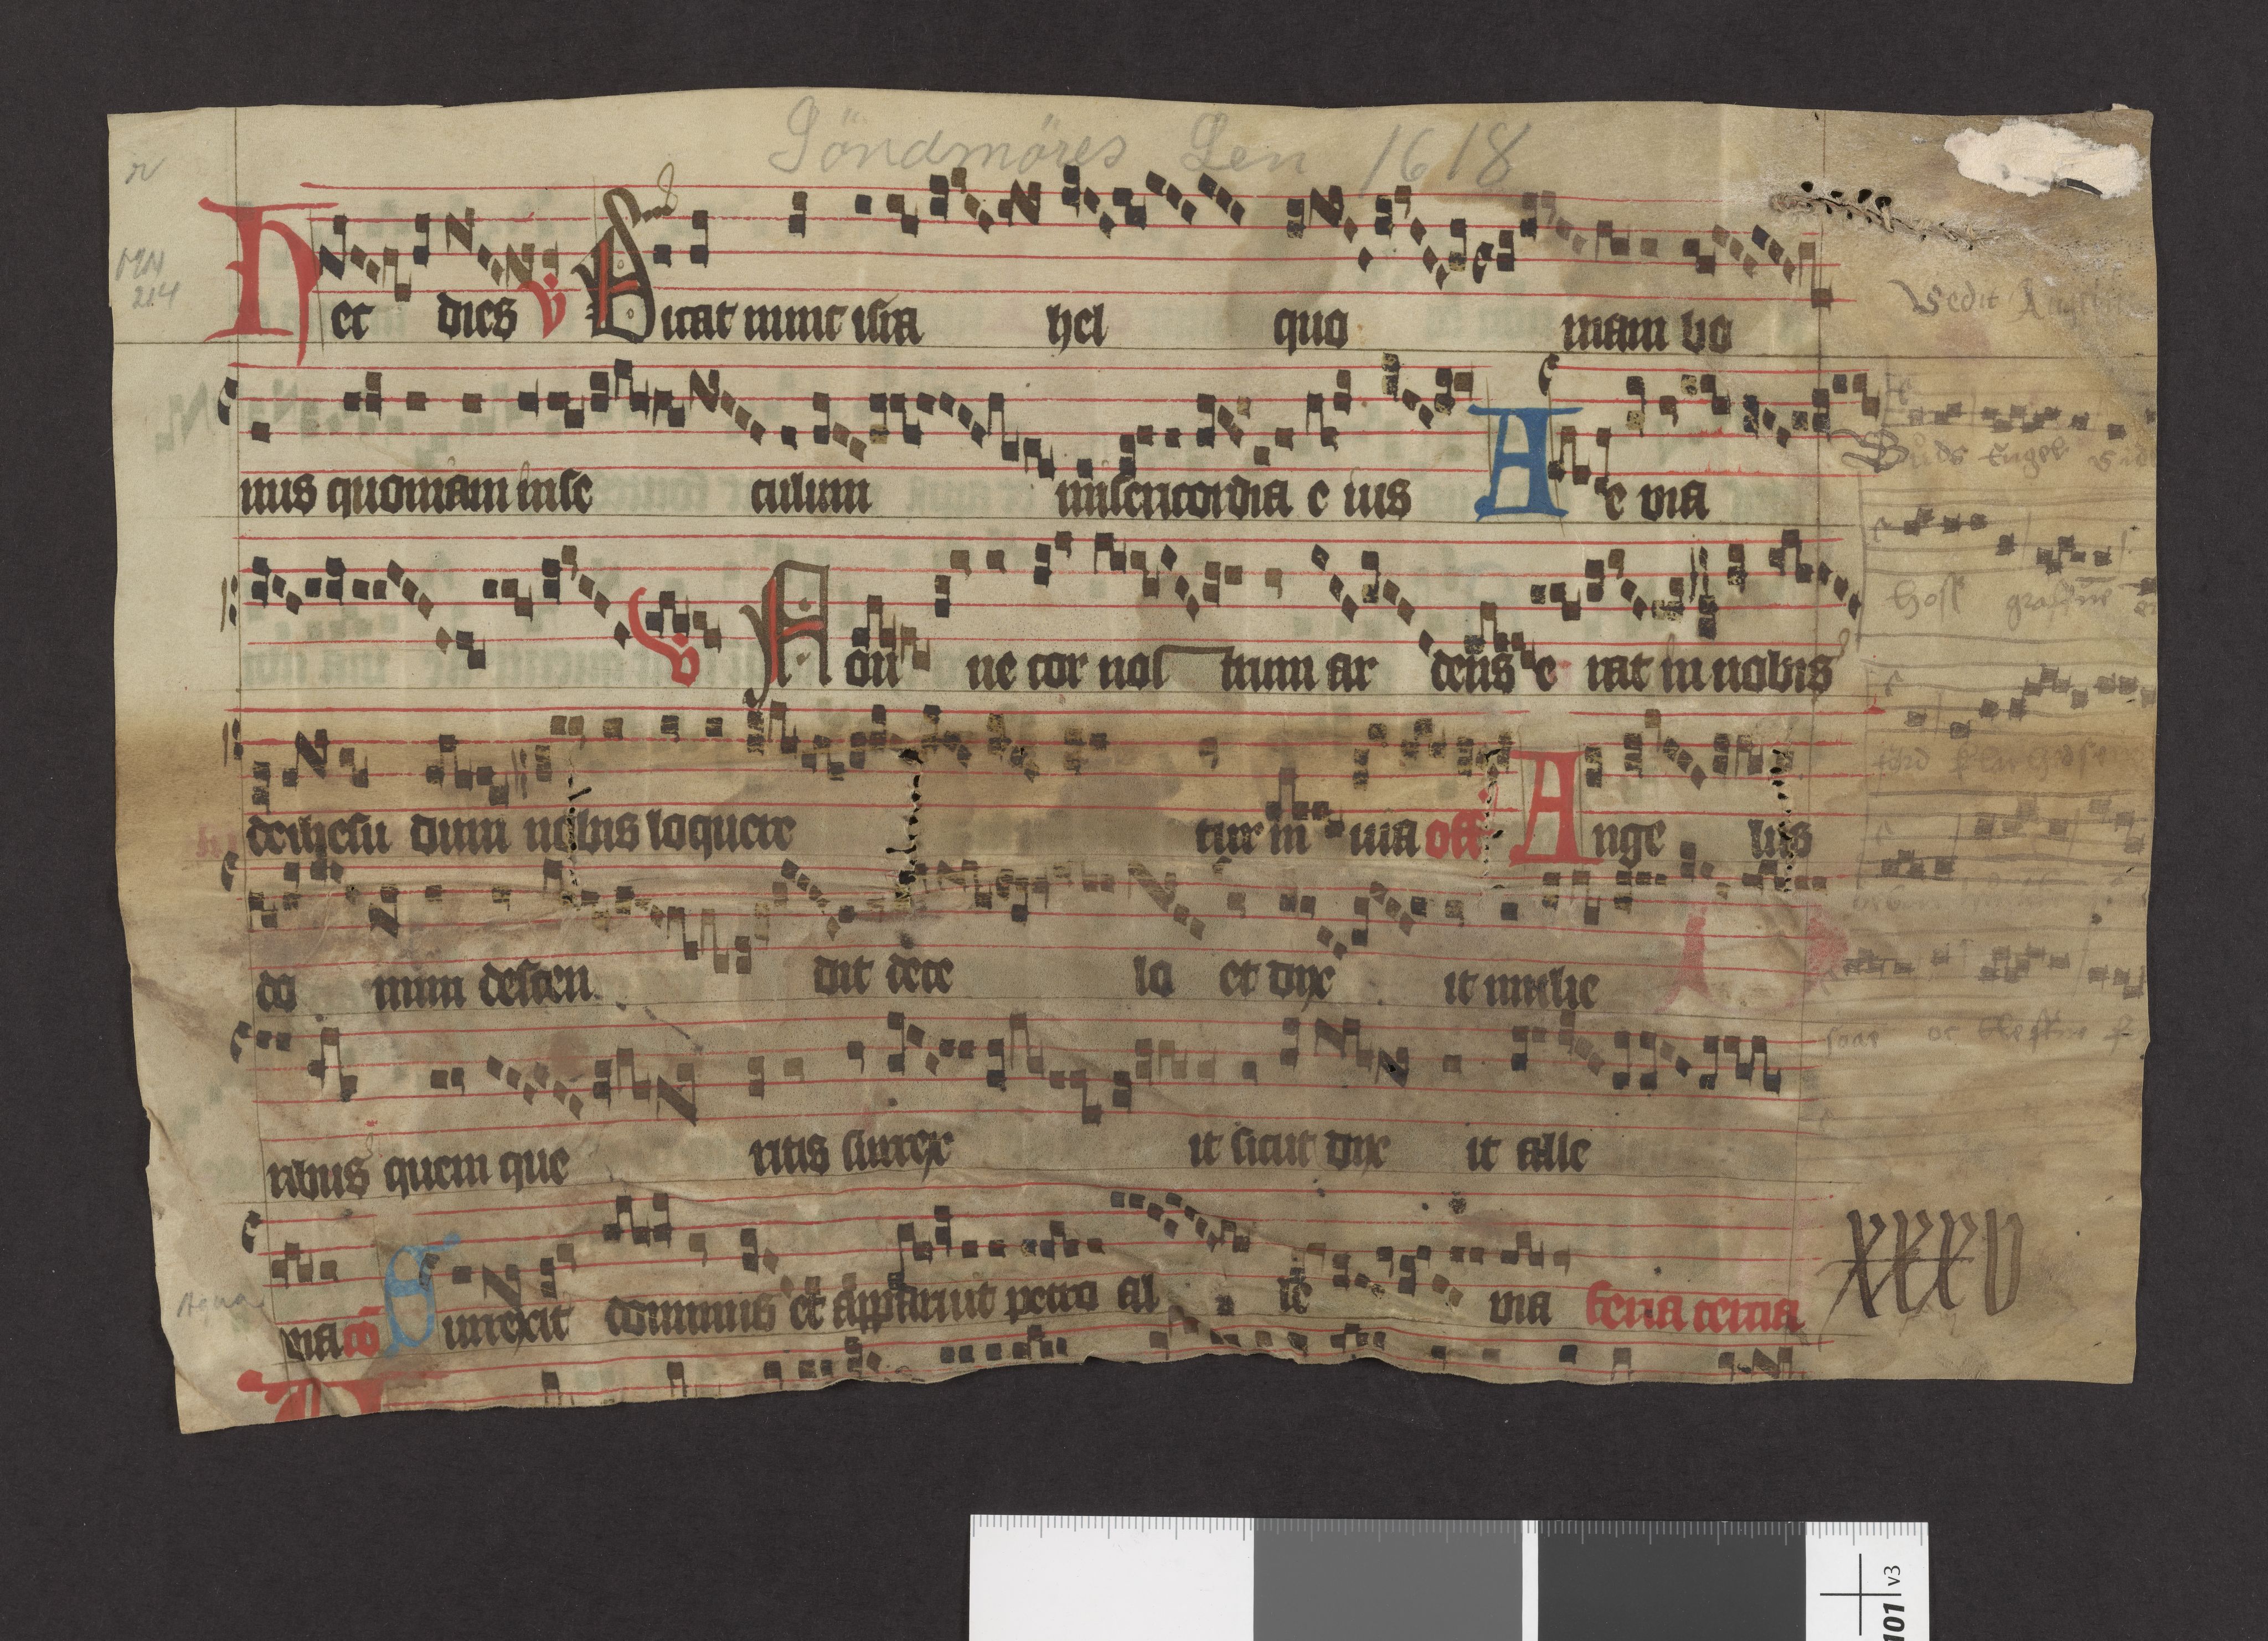 Söndmöres Len 1618
r
MN
214
Hec dies V Dicat nunc isra hel quo niam bo
nus quoniam in se culum misericordia e ius A e uia
V Non ne cor nos trum ar dens e rat in nobis
de ihesu dum nobis loquere tur in uia off Ange lus
do mini descen dit de ce lo et dix it mulie
ribus quem que ritis surrex it sicut dix it alle
uia co Surrexit dominus et apparuit petro al le uia feria tercia
Vedit Angelus
Guds Engel
hoss graffue
soar oc
XXXV
101 v3